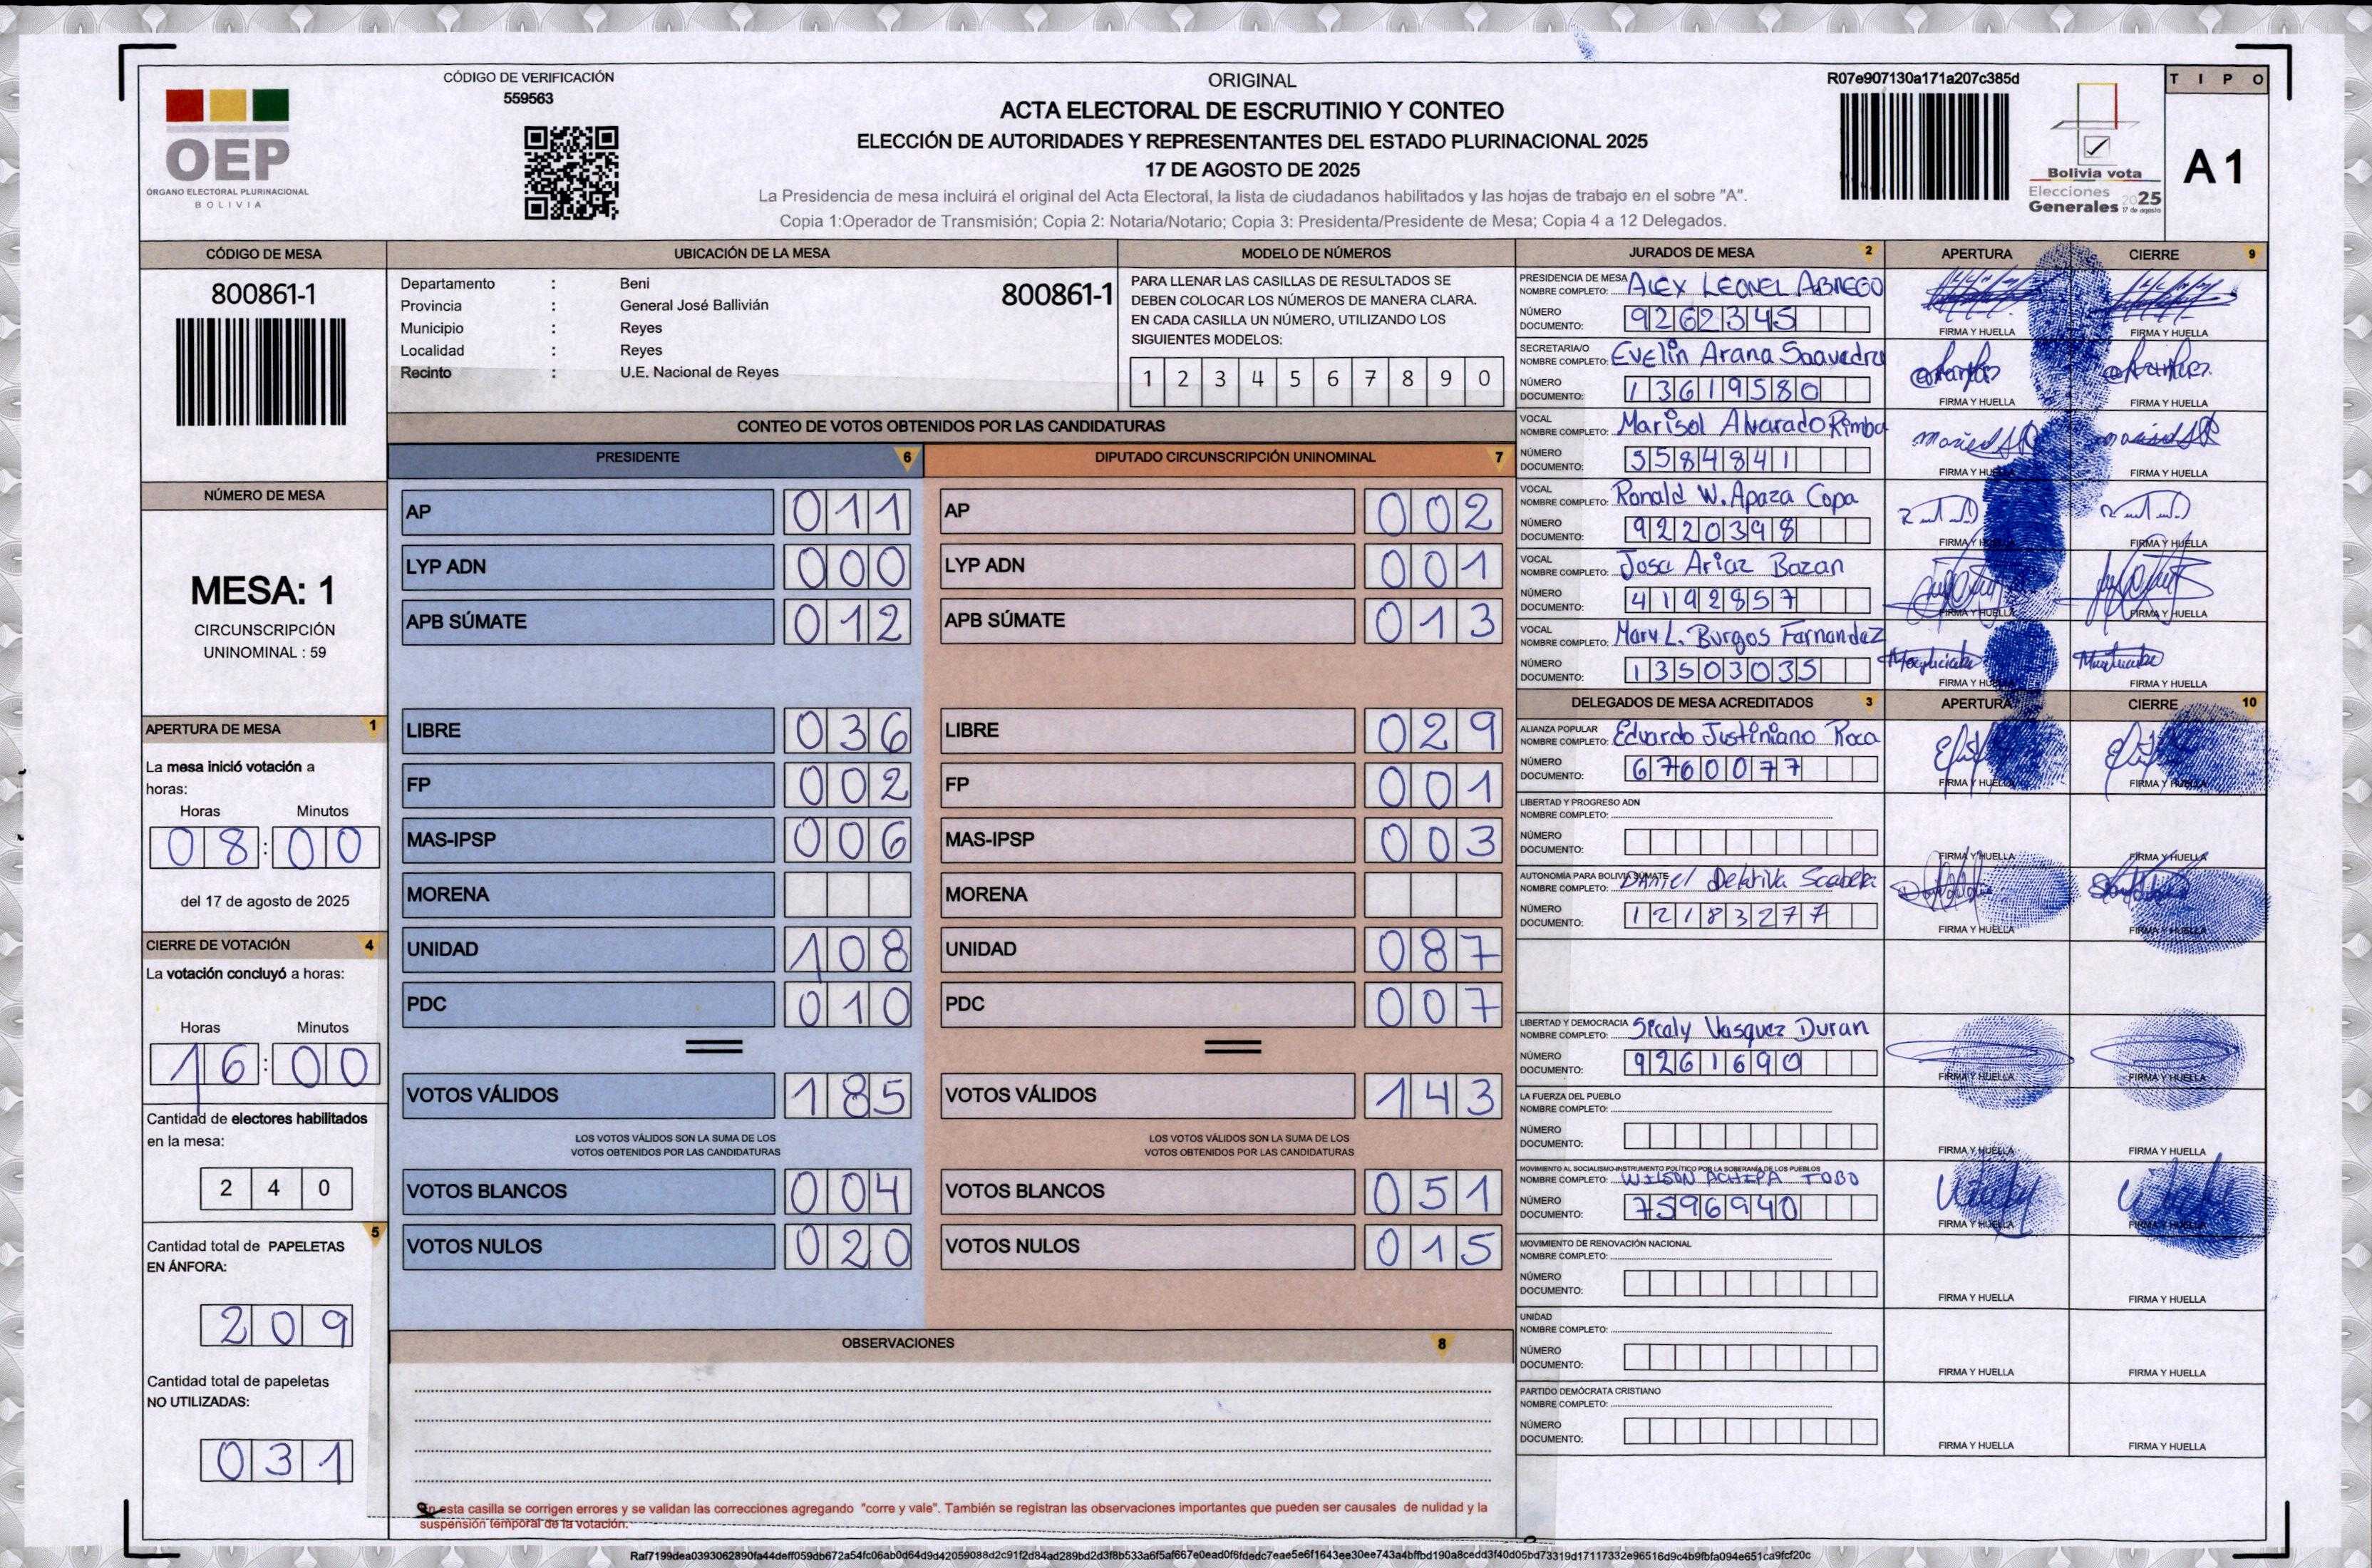 CÓDIGO DE VERIFICACIÓN
559563
OEP
ÓRGANO ELECTORAL PLURINACIONAL
BOLIVIA
ORIGINAL
ACTA ELECTORAL DE ESCRUTINIO Y CONTEO
ELECCIÓN DE AUTORIDADES Y REPRESENTANTES DEL ESTADO PLURINACIONAL 2025
17 DE AGOSTO DE 2025
La Presidencia de mesa incluirá el original del Acta Electoral, la lista de ciudadanos habilitados y las hojas de trabajo en el sobre "A".
Copia 1:Operador de Transmisión; Copia 2: Notaria/Notario; Copia 3: Presidenta/Presidente de Mesa; Copia 4 a 12 Delegados.
R07e907130a171a207c385d
Bolivia vota
Elecciones
Generales 2025
17 de agosto
TIPO
A 1
CÓDIGO DE MESA
800861-1
UBICACIÓN DE LA MESA
Departamento : Beni
Provincia : General José Ballivián
Municipio : Reyes
Localidad : Reyes
Recinto : U.E. Nacional de Reyes
800861-1
MODELO DE NÚMEROS
PARA LLENAR LAS CASILLAS DE RESULTADOS SE
DEBEN COLOCAR LOS NÚMEROS DE MANERA CLARA.
EN CADA CASILLA UN NÚMERO, UTILIZANDO LOS
SIGUIENTES MODELOS:
1 2 3 4 5 6 7 8 9 0
NÚMERO DE MESA
MESA: 1
CIRCUNSCRIPCIÓN
UNINOMINAL : 59
APERTURA DE MESA 1
La mesa inició votación a
horas:
Horas Minutos
08:00
del 17 de agosto de 2025
CIERRE DE VOTACIÓN 4
La votación concluyó a horas:
Horas Minutos
16:00
Cantidad de electores habilitados
en la mesa:
2 4 0
5
Cantidad total de PAPELETAS
EN ÁNFORA:
209
Cantidad total de papeletas
NO UTILIZADAS:
031
CONTEO DE VOTOS OBTENIDOS POR LAS CANDIDATURAS
PRESIDENTE 6
AP 011
LYP ADN 000
APB SÚMATE 012
LIBRE 036
FP 002
MAS-IPSP 006
MORENA
UNIDAD 108
PDC 010
VOTOS VÁLIDOS 185
LOS VOTOS VÁLIDOS SON LA SUMA DE LOS
VOTOS OBTENIDOS POR LAS CANDIDATURAS
VOTOS BLANCOS 004
VOTOS NULOS 020
DIPUTADO CIRCUNSCRIPCIÓN UNINOMINAL 7
AP 002
LYP ADN 001
APB SÚMATE 013
LIBRE 029
FP 001
MAS-IPSP 003
MORENA
UNIDAD 087
PDC 007
VOTOS VÁLIDOS 143
LOS VOTOS VÁLIDOS SON LA SUMA DE LOS
VOTOS OBTENIDOS POR LAS CANDIDATURAS
VOTOS BLANCOS 051
VOTOS NULOS 015
OBSERVACIONES 8
En esta casilla se corrigen errores y se validan las correcciones agregando "corre y vale". También se registran las observaciones importantes que pueden ser causales de nulidad y la
suspensión temporal de la votación.
JURADOS DE MESA 2 APERTURA CIERRE 9
PRESIDENCIA DE MESA
NOMBRE COMPLETO: ALEX LEONEL ABREGO
NÚMERO
DOCUMENTO: 9262345
FIRMA Y HUELLA FIRMA Y HUELLA
SECRETARIA/O
NOMBRE COMPLETO: Evelin Arana Saavedra
NÚMERO
DOCUMENTO: 13619580
FIRMA Y HUELLA FIRMA Y HUELLA
VOCAL
NOMBRE COMPLETO: Marisol Alvarado Rimba
NÚMERO
DOCUMENTO: 5584841
FIRMA Y HUELLA FIRMA Y HUELLA
VOCAL
NOMBRE COMPLETO: Ronald W. Apaza Copa
NÚMERO
DOCUMENTO: 9220398
FIRMA Y HUELLA FIRMA Y HUELLA
VOCAL
NOMBRE COMPLETO: Jose Ariaz Bazan
NÚMERO
DOCUMENTO: 4192857
FIRMA Y HUELLA FIRMA Y HUELLA
VOCAL
NOMBRE COMPLETO: Mary L. Burgos Fernandez
NÚMERO
DOCUMENTO: 13503035
FIRMA Y HUELLA FIRMA Y HUELLA
DELEGADOS DE MESA ACREDITADOS 3 APERTURA CIERRE 10
ALIANZA POPULAR
NOMBRE COMPLETO: Eduardo Justiniano Roca
NÚMERO
DOCUMENTO: 6760077
FIRMA Y HUELLA FIRMA Y HUELLA
LIBERTAD Y PROGRESO ADN
NOMBRE COMPLETO:
NÚMERO
DOCUMENTO:
FIRMA Y HUELLA FIRMA Y HUELLA
AUTONOMÍA PARA BOLIVIA SÚMATE
NOMBRE COMPLETO: Daniel
NÚMERO
DOCUMENTO: 12183277
FIRMA Y HUELLA FIRMA Y HUELLA
LIBERTAD Y DEMOCRACIA
NOMBRE COMPLETO: Vasquez Duran
NÚMERO
DOCUMENTO: 9261690
FIRMA Y HUELLA FIRMA Y HUELLA
LA FUERZA DEL PUEBLO
NOMBRE COMPLETO:
NÚMERO
DOCUMENTO:
FIRMA Y HUELLA FIRMA Y HUELLA
MOVIMIENTO AL SOCIALISMO-INSTRUMENTO POLÍTICO POR LA SOBERANÍA DE LOS PUEBLOS
NOMBRE COMPLETO: WILSON ACHIPA TOBO
NÚMERO
DOCUMENTO: 7596940
FIRMA Y HUELLA FIRMA Y HUELLA
MOVIMIENTO DE RENOVACIÓN NACIONAL
NOMBRE COMPLETO:
NÚMERO
DOCUMENTO:
FIRMA Y HUELLA FIRMA Y HUELLA
UNIDAD
NOMBRE COMPLETO:
NÚMERO
DOCUMENTO:
FIRMA Y HUELLA FIRMA Y HUELLA
PARTIDO DEMÓCRATA CRISTIANO
NOMBRE COMPLETO:
NÚMERO
DOCUMENTO:
FIRMA Y HUELLA FIRMA Y HUELLA